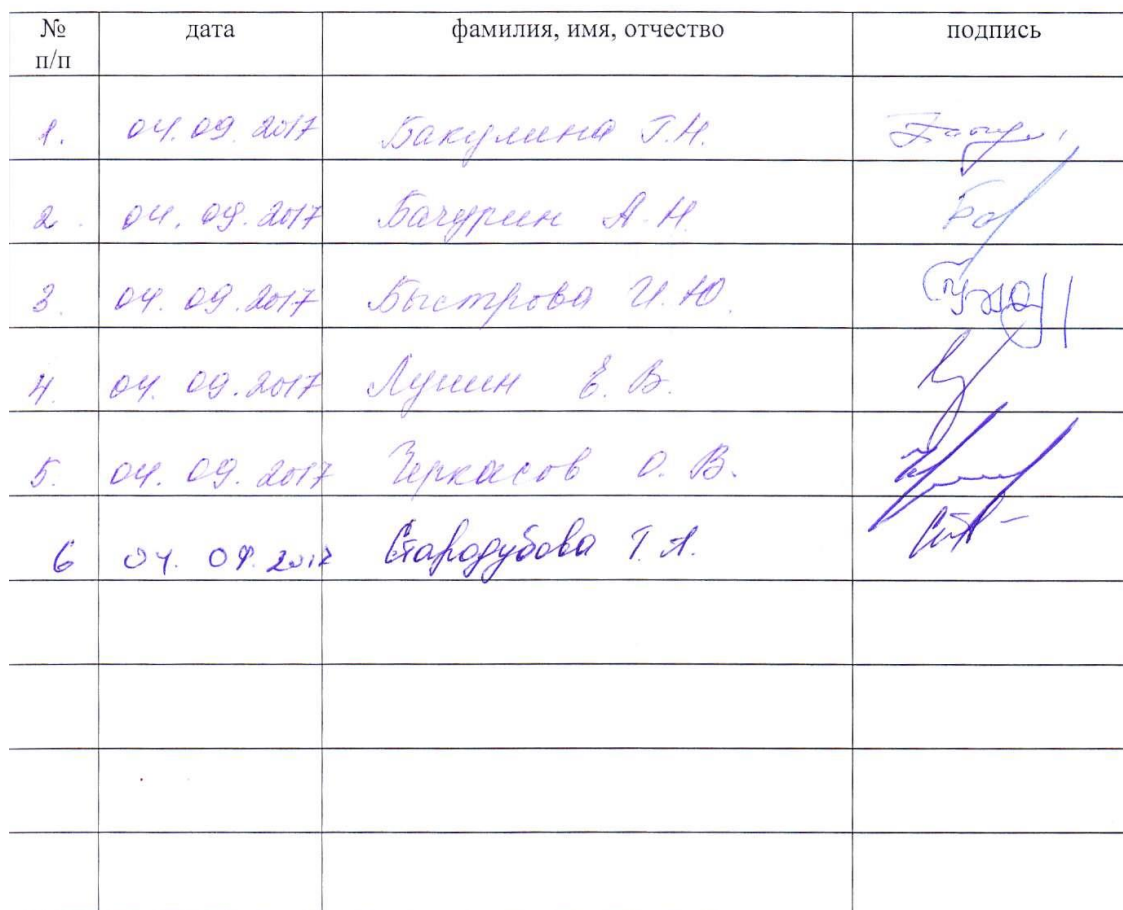 № п/п дата фамилия, имя, отчество подпись
1. 04.09.2017 Бакулина Г.Н.
2. 04.09.2017 Бачурин А.Н.
3. 04.09.2017 Быстрова И.Ю.
4. 04.09.2017 Лунин Е.В.
5. 04.09.2017 Черкасов О.В.
6 04.09.2017 Стародубова Т.А.